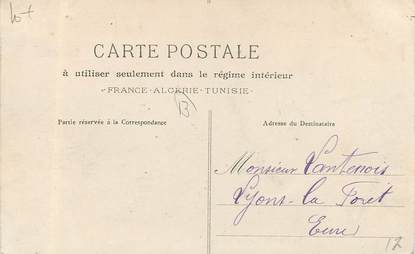 lot
CARTE POSTALE
à utiliser seulement dans le régime intérieur
-FRANCE-ALGERIE-TUNISIE-
B
Partie réservée à la Correspondance
Adresse du Destinataire
Monsieur Lantenois
Lyons-la Foret
Eure
12